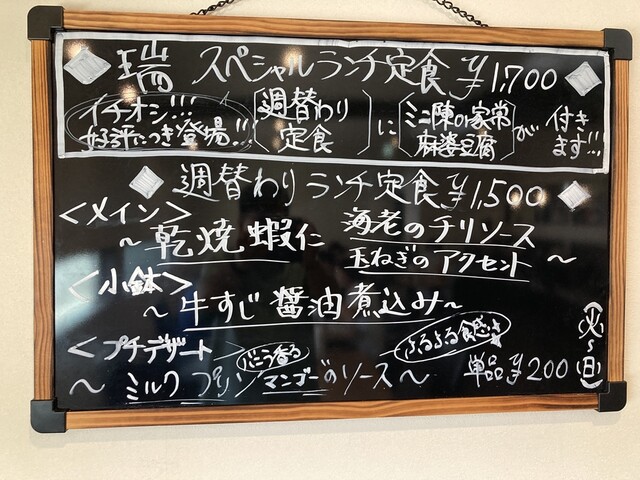 瑞 スペシャルランチ定食 ¥1,700
イチオシ!!!
好評につき登場!!!
週替わり
定食
に
ミニ陳の家常
麻婆豆腐
が
付き
ます!!!
週替わりランチ定食 ¥1,500
<メイン>
~乾焼蝦仁 海老のチリソース
玉ねぎのアクセント~
<小鉢>
~牛すじ醤油煮込み~
<プチデザート>
バニラ香る
ぷるぷる食感
~ミルクプリン マンゴーのソース~
単品¥200
(火~日)